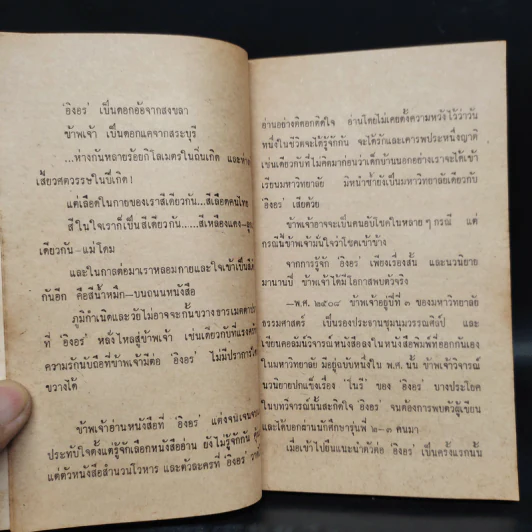 'อิงอร' เป็นดอกอ้อจากสงขลา
ข้าพเจ้า เป็นดอกแคจากสระบุรี
...ห่างกันหลายร้อยกิโลเมตรในถิ่นเกิด และห่าง
เสี้ยวศตวรรษในปีเกิด!
แต่เลือดในกายของเราสีเดียวกัน...สีเลือดคนไทย
สีในใจเราก็เป็นสีเดียวกัน.....สีเหลืองแดง-
เดียวกัน-แม่โดม
และในกาลต่อมาเราหลอมกายและใจเข้าเป็น
กันอีก คือสีน้ำหมึก-บนถนนหนังสือ
ภูมิกำเนิดและวัยไม่อาจจะกั้นขวางธารเมตตา
ที่ 'อิงอร' หลั่งไหลสู่ข้าพเจ้า เช่นเดียวกับที่แรง
ความรักนับถือที่ข้าพเจ้ามีต่อ 'อิงอร' ไม่มีปราการใด
ขวางได้
ข้าพเจ้าอ่านหนังสือที่ 'อิงอร' แต่งจน
ประทับใจตั้งแต่รู้จักเลือกหนังสืออ่าน ยังไม่รู้จักกัน
แต่ตัวหนังสือสำนวนโวหาร และตัวละครที่ 'อิงอร'
อ่านอย่างติดอกติดใจ อ่านโดยไม่เคยตั้งความหวังไว้ว่าวัน
หนึ่งในชีวิตจะได้รู้จักกัน จะได้รักและเคารพประหนึ่งญาติ
เช่นเดียวกับที่ไม่คิดมาก่อนว่าเด็กบ้านนอกอย่างเราจะได้เข้า
เรียนมหาวิทยาลัย มิหนำซ้ำยังเป็นมหาวิทยาลัยเดียวกับ
'อิงอร' เสียด้วย
ข้าพเจ้าอาจจะเป็นคนอับโชคในหลาย ๆ กรณี แต่
กรณีนี้ข้าพเจ้ามั่นใจว่าโชคเข้าข้าง
จากการรู้จัก 'อิงอร' เพียงเรื่องสั้น และนวนิยาย
มานานปี ข้าพเจ้าได้มีโอกาสพบตัวจริง
—พ.ศ. ๒๕๐๔ ข้าพเจ้าอยู่ปีที่ ๓ ของมหาวิทยาลัย
ธรรมศาสตร์ เป็นรองประธานชุมนุมวรรณศิลป์ และ
เขียนคอลัมน์วิจารณ์หนังสือลงในหนังสือพิมพ์ที่ออกกันเอง
ในมหาวิทยาลัย มีอยู่ฉบับหนึ่งใน พ.ศ. นั้น ข้าพเจ้าวิจารณ์
นวนิยายปกแข็งเรื่อง 'ไนรี' ของ 'อิงอร' บางประโยค
ในบทวิจารณ์นั้นสะกิดใจ 'อิงอร' จนต้องการพบตัวผู้เขียน
และได้บอกผ่านนักศึกษารุ่นพี่ ๒-๓ คนมา
เมื่อเข้าไปยืนแนะนำตัวต่อ 'อิงอร' เป็นครั้งแรกนั้น